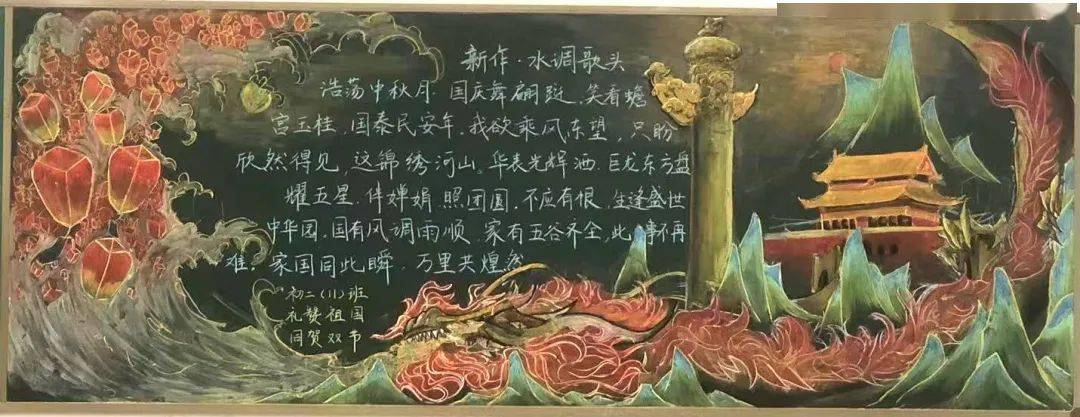 新作·水调歌头
浩荡中秋月.国庆舞翩跹.笑看蟾
宫玉桂.国泰民安年.我欲乘风东望,只盼
欣然得见,这锦绣河山。华表光辉洒.巨龙东方盘
耀五星.伴婵娟.照团圆.不应有恨.生逢盛世
中华园.国有风调雨顺.家有五谷齐全,此事不再
难。家国同此瞬.万里共煌
初二(11)班
礼赞祖国
同贺双节